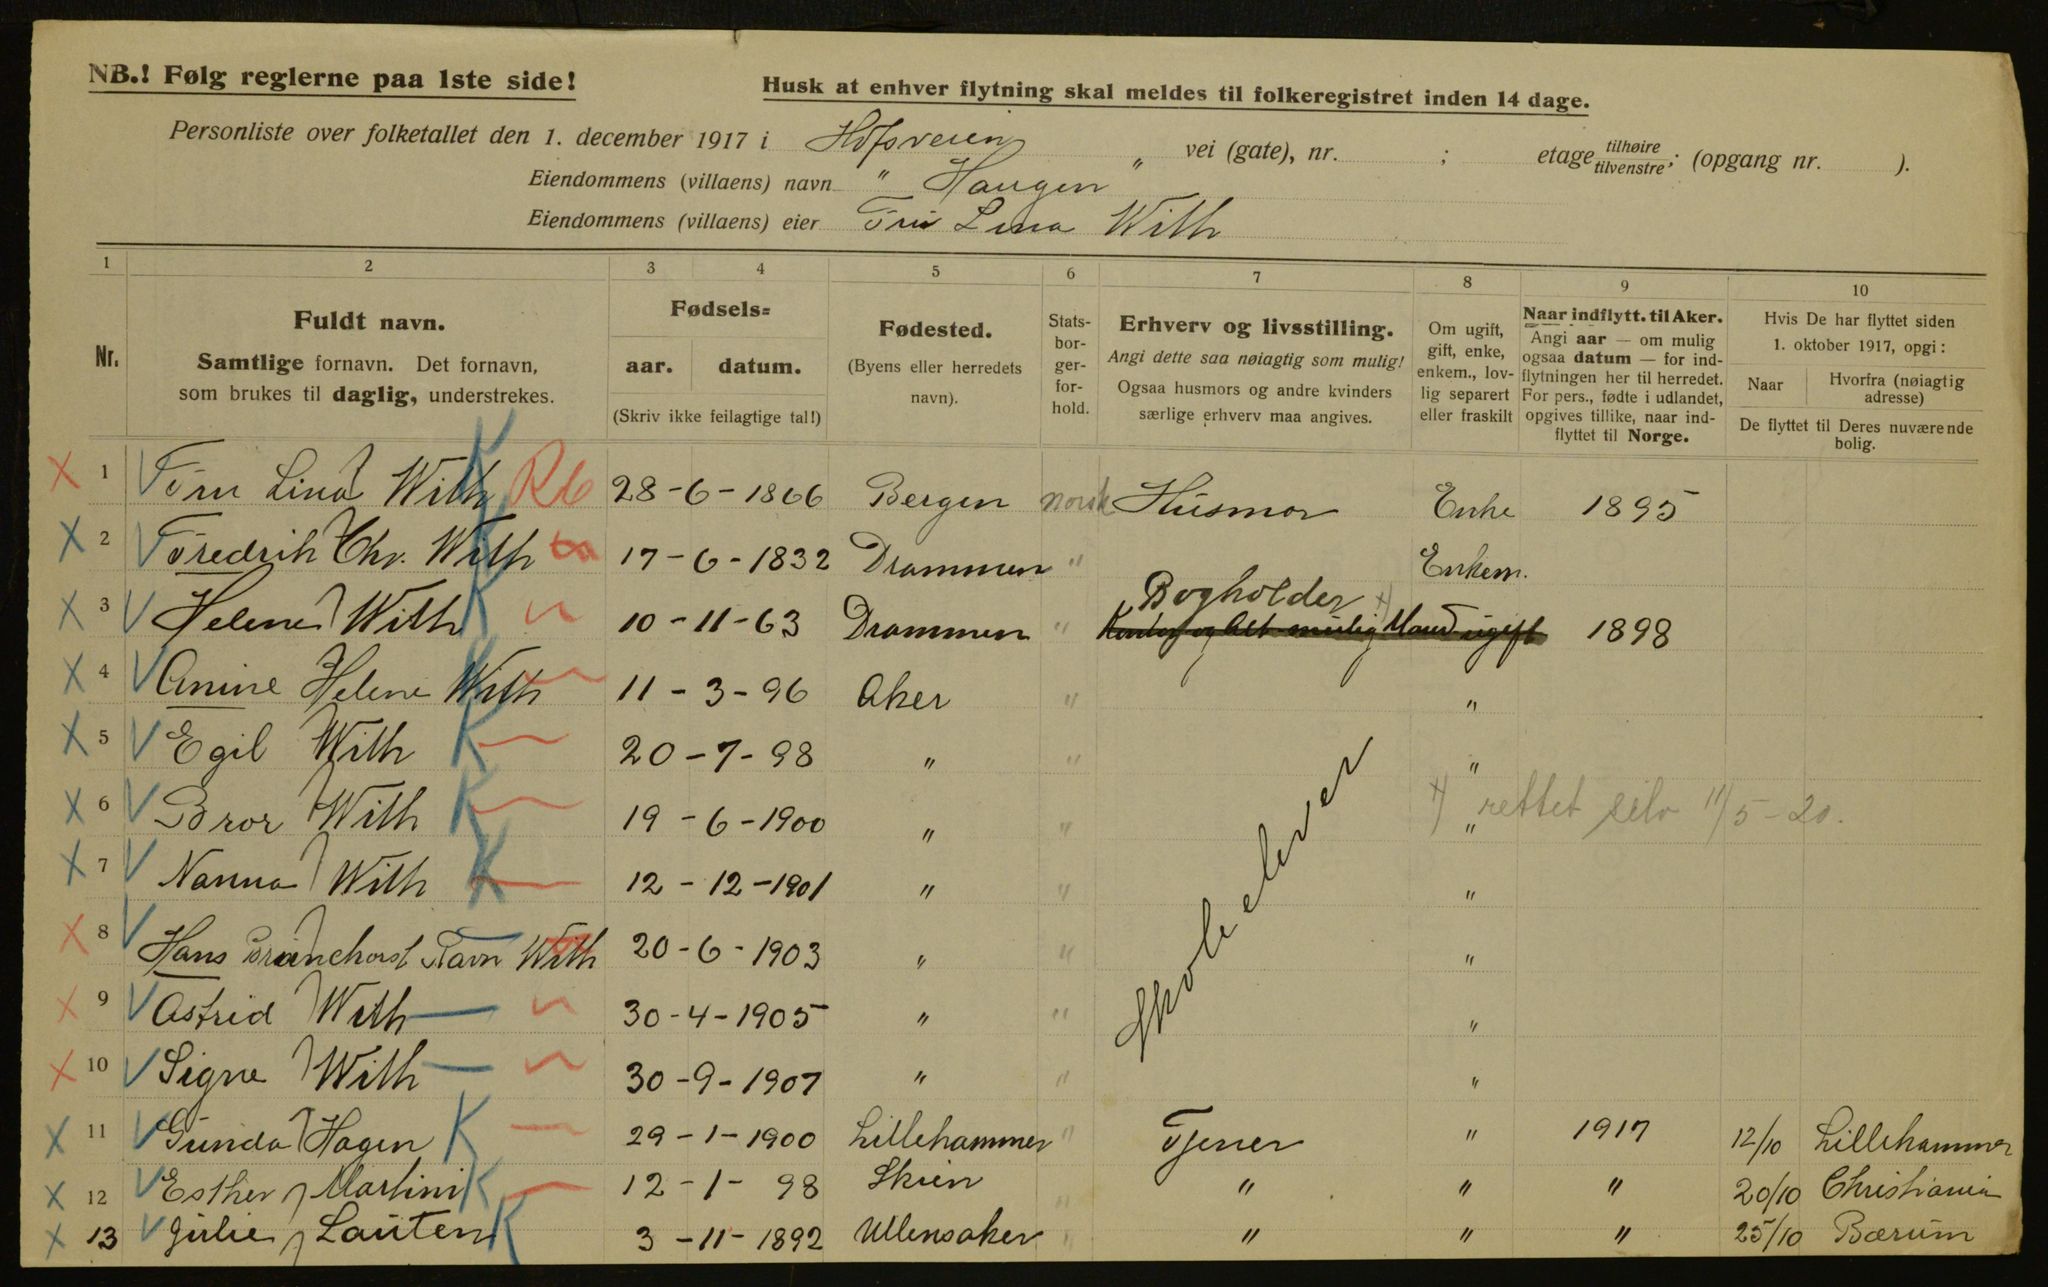 NB.! Følg reglerne paa 1ste side!
Husk at enhver flytning skal meldes til folkeregistret inden 14 dage.
Personliste over folketallet den 1. december 1917 i Hofsveien " vei (gate), nr. ; etage tilhøire tilvenstre; (opgang nr. ).
Eiendommens (villaens) navn " Haugen "
Eiendommens (villaens) eier Fru Lina With
1 2 3 4 5 6 7 8 9 10
Nr.
Fuldt navn.
Samtlige fornavn. Det fornavn,
som brukes til daglig, understrekes.
Fødsels=
aar. datum.
(Skriv ikke feilagtige tal!)
Fødested.
(Byens eller herredets
navn).
Stats-
bor-
ger-
for-
hold.
Erhverv og livsstilling.
Angi dette saa nøiagtig som mulig!
Ogsaa husmors og andre kvinders
særlige erhverv maa angives.
Om ugift,
gift, enke,
enkem., lov-
lig separert
eller fraskilt
Naar indflytt. til Aker.
Angi aar — om mulig
ogsaa datum — for ind-
flytningen her til herredet.
For pers., fødte i udlandet,
opgives tillike, naar ind-
flyttet til Norge.
Hvis De har flyttet siden
1. oktober 1917, opgi:
Naar
Hvorfra (nøiagtig
adresse)
De flyttet til Deres nuværende
bolig.
X 1 Fru Lina With K 28-6-1866 Bergen norsk Husmor Enke 1895
X 2 Fredrik Chr. With 17-6-1832 Drammen " Enkem.
Bogholder x)
X 3 Helene With K 10-11-63 Drammen " Mand ugift 1898
X 4 Anine Helene With 11-3-96 Aker " "
X 5 Egil With K 20-7-98 " " "
X 6 Bror With K 19-6-1900 " " "
x) rettet selv 11/5-20.
X 7 Nanna With K 12-12-1901 " " "
Skoleelever
X 8 Hans Favn With 20-6-1903 " " "
X 9 Astrid With 30-4-1905 " " "
X 10 Signe With 30-9-1907 " " "
X 11 Gunda Hagen K 29-1-1900 Lillehammer " Tjener " 1917 12/10 Lillehammer
X 12 Esther Martini K 12-1-98 Skien " " " " 20/10 Christiania
X 13 Julie Lauten K 3-11-1892 Ullensaker " " " " 25/10 Bærum